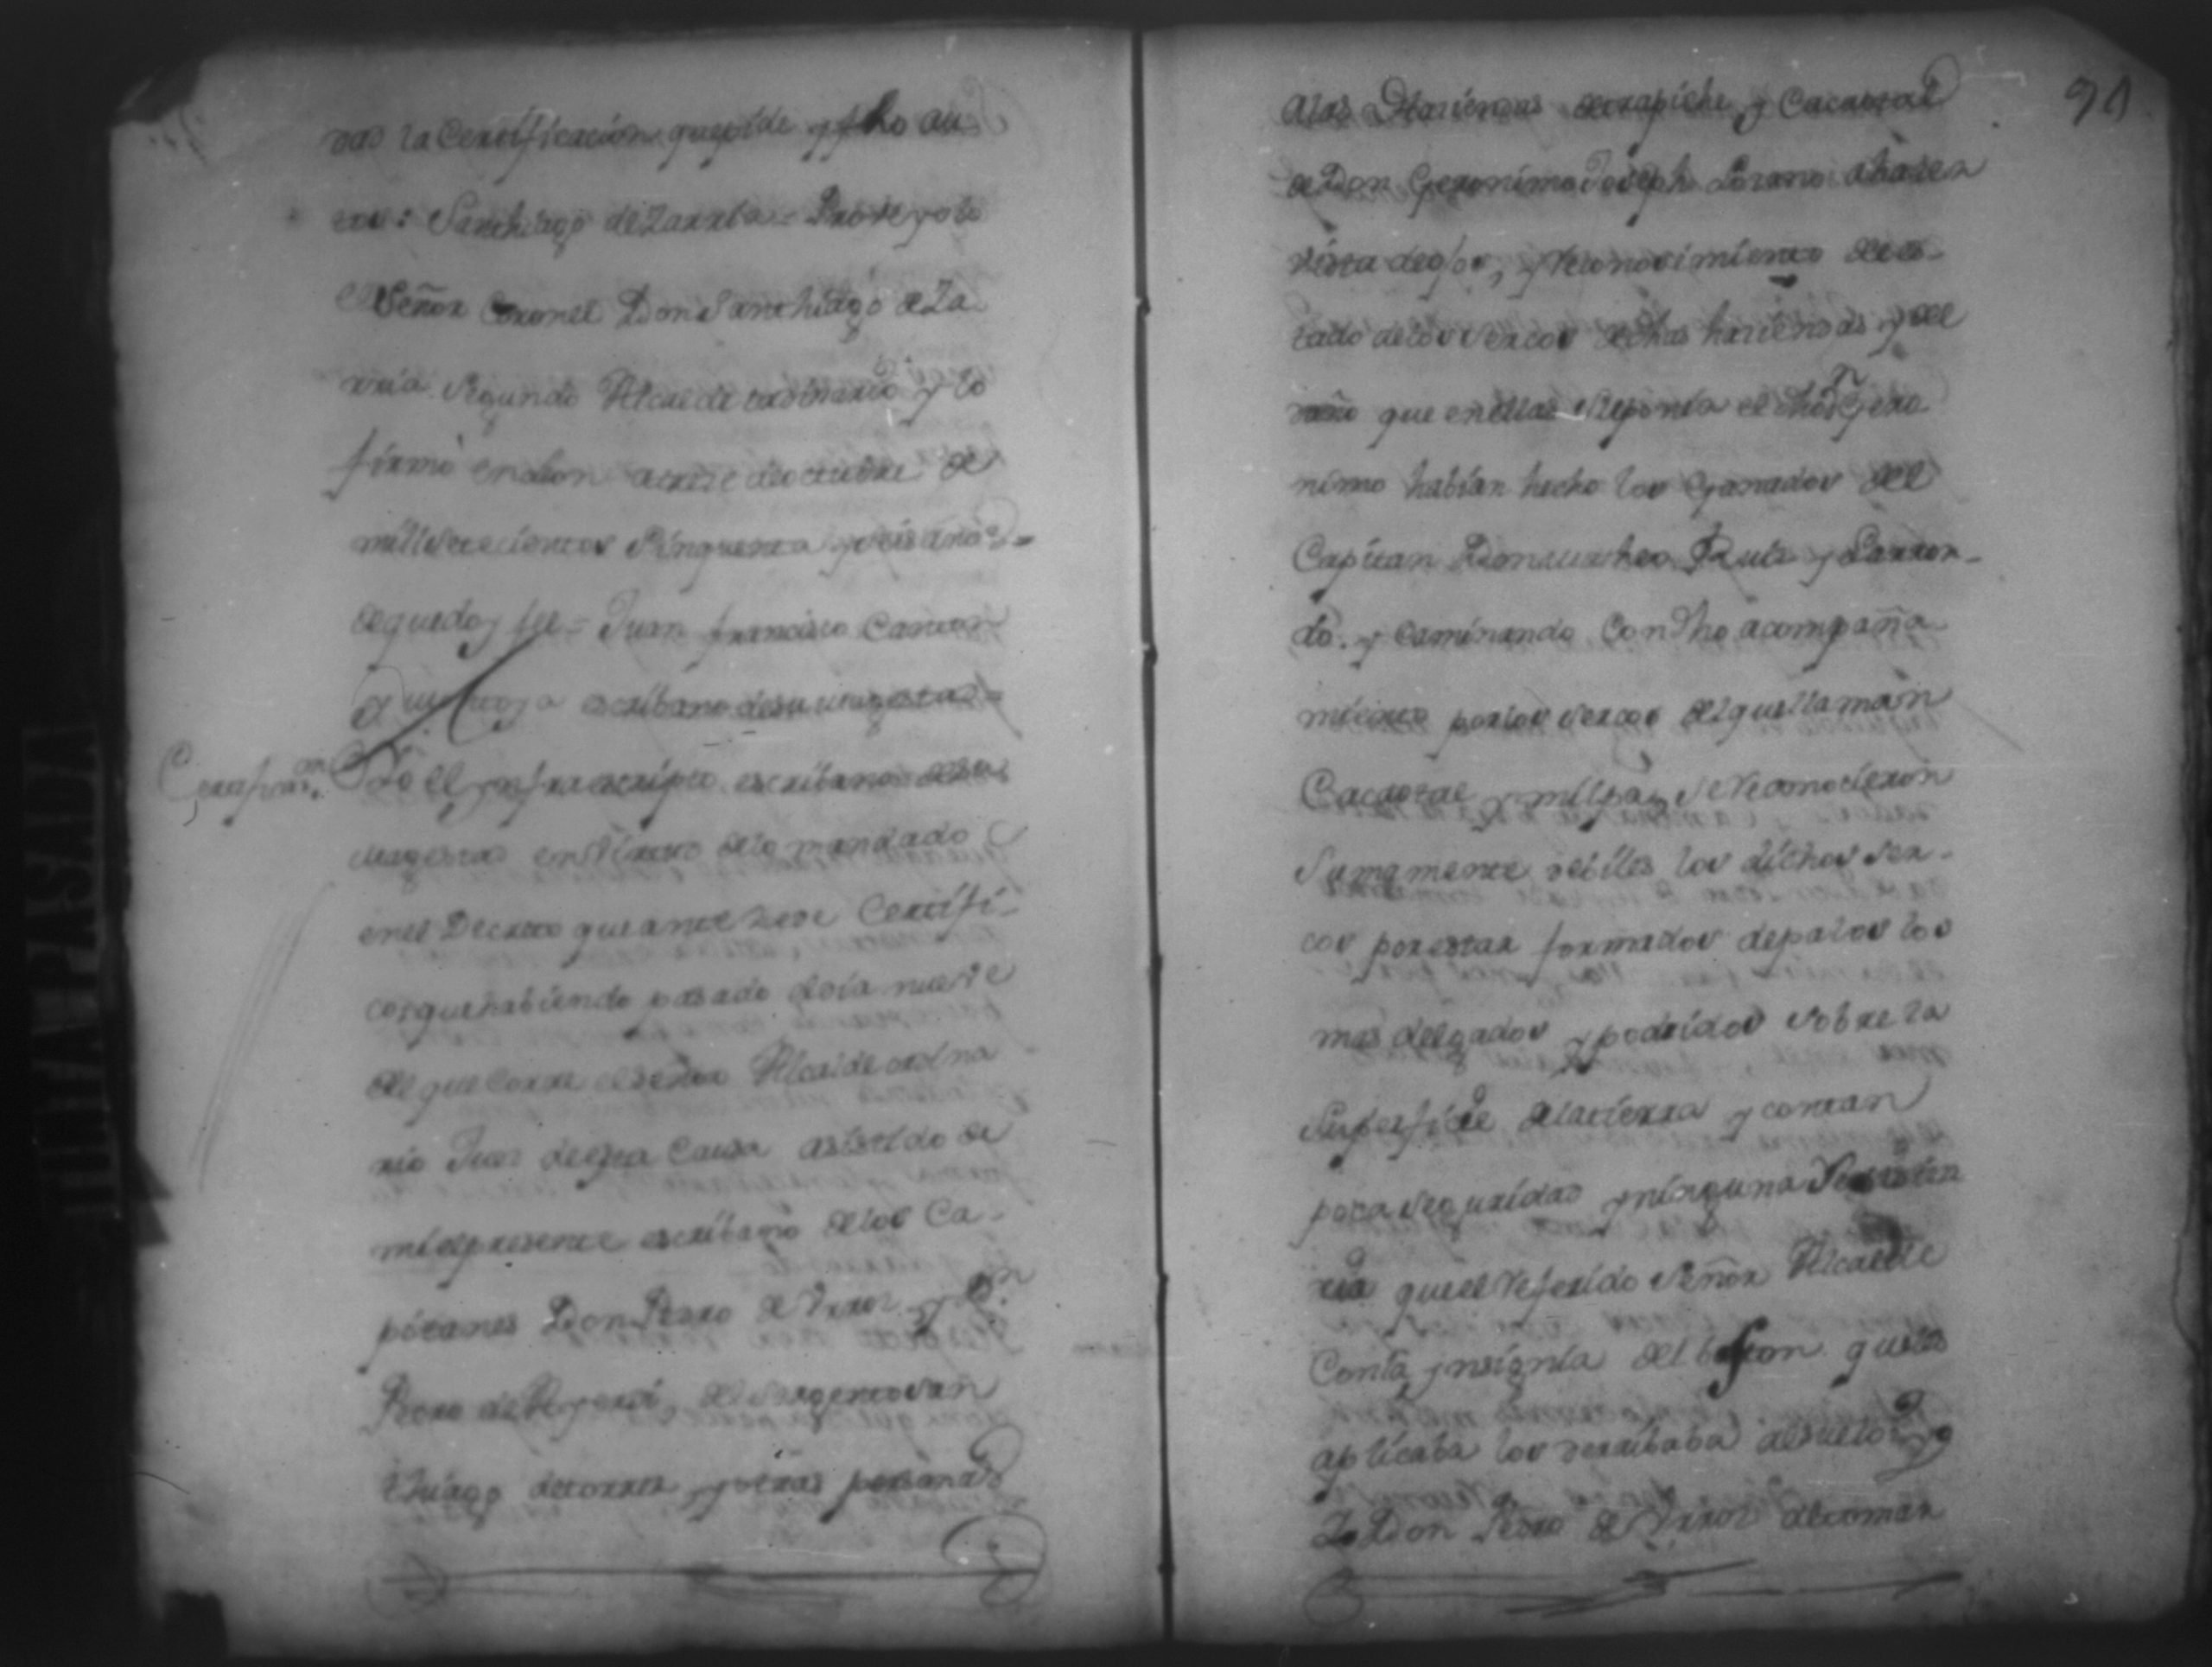 dad la Certificacion que pide y fho au
tue: Santhiago de Zarria = Proveyolo
el Señor Coronel Don Santhiago de Za
rria. Segundo Alcalde ordinario y lo
firmó en Leon a treze de octubre de
mill setecientos sinquenta y seis años =
de que doy fee = Juan francisco Canton
escribano de su magestad =
Certificaon. Yo el ynfraescripto escribano de su
magestad en Virtud de lo mandado
en el Decreto que antecede Certifi-
co; que habiendo pasado el dia nueve
del que Corre el señor Alcalde ordina
rio Juez de esta Causa asistido de
mi el presente escribano de los Ca-
pitanes Don Pedro de Vrroz y Dn.
Pedro de el sargento San
thiago de torres y otras personas
91
a las Haziendas de trapiche y Cacaotal
de Don Geronimo Joseph Lozano a hazer
vista de ojos, y Reconocimiento de es-
tado de los sercos de dhas haziendas y del
daño que en ellas Suponia el dho Dn Gero
nimo habian hecho los Ganados del
Capitan Don Matheo Ruiz y Larron-
do. y Caminando Con dho acompaña
miento por los sercos del que llaman
Cacaotal y milpa, se Reconocieron
Sumamente debiles los dichos ser-
cos por estar formados de palos los
mas delgados y podridos sobre la
Superficie de la tierra y con tan
poca seguridad y ninguna
que el Referido Señor Alcalde
Con la ynsignia del baston que les
aplicaba los derribaba al suelo y
Don Pedro de Vrroz al tomar